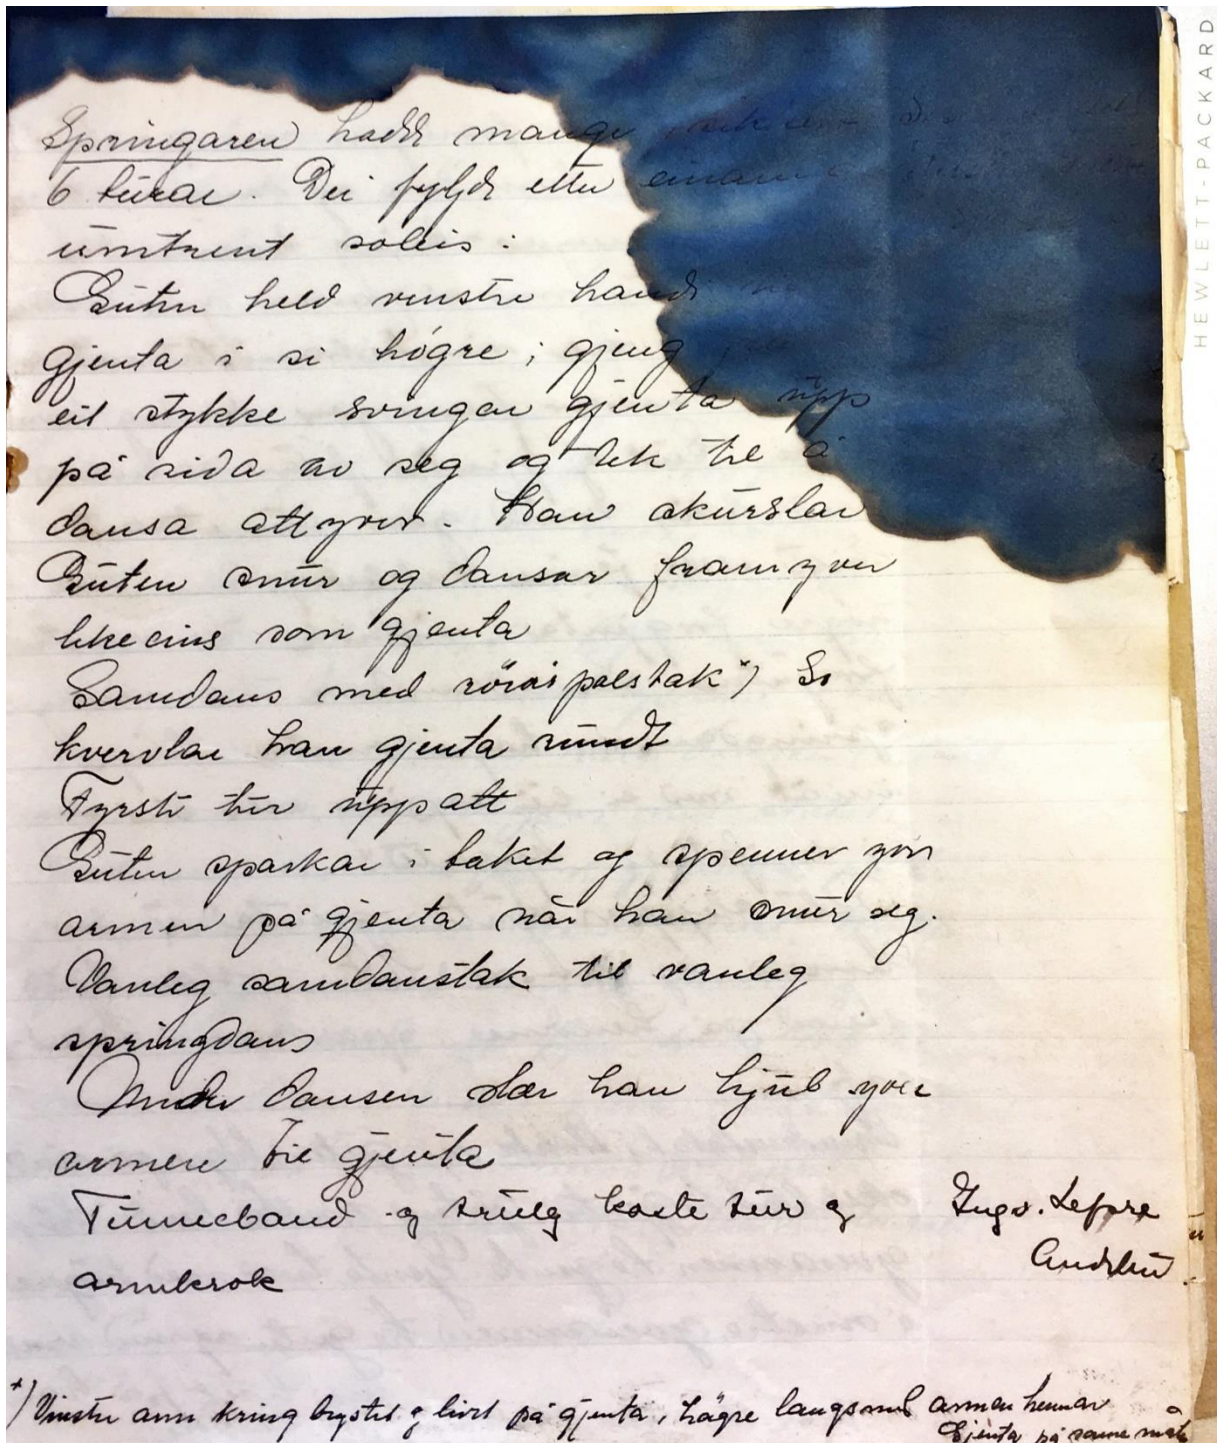 Springaren hadde mange
6 turar. Dei fylgde etter einannan
umtrent soleis:
Guten held venstre handi
gjenta i si høgre; gjeng
eit stykke svingar gjenta upp
på sida av seg og tek til å
dansa attyver. Han skurslar
Guten snur og dansar framyver
likeeins som gjenta
Samdans med rörospolstak *) So
kvervlar han gjenta rundt
Fyrste tur upp att
Guten sparkar i taket og spenner yver
armen på gjenta når han snur seg.
Vanleg samdanstak til vanleg
springdans
Under dansen slær han hjul yver
armen til gjenta
Tunneband og kaste tur og
armkrok
Ingv. Lefsre
HEWLETT-PACKARD
*) Vinstre arm kring brystet og livet på gjenta, høgre langsmed armen hennar
Gjenta på same måte